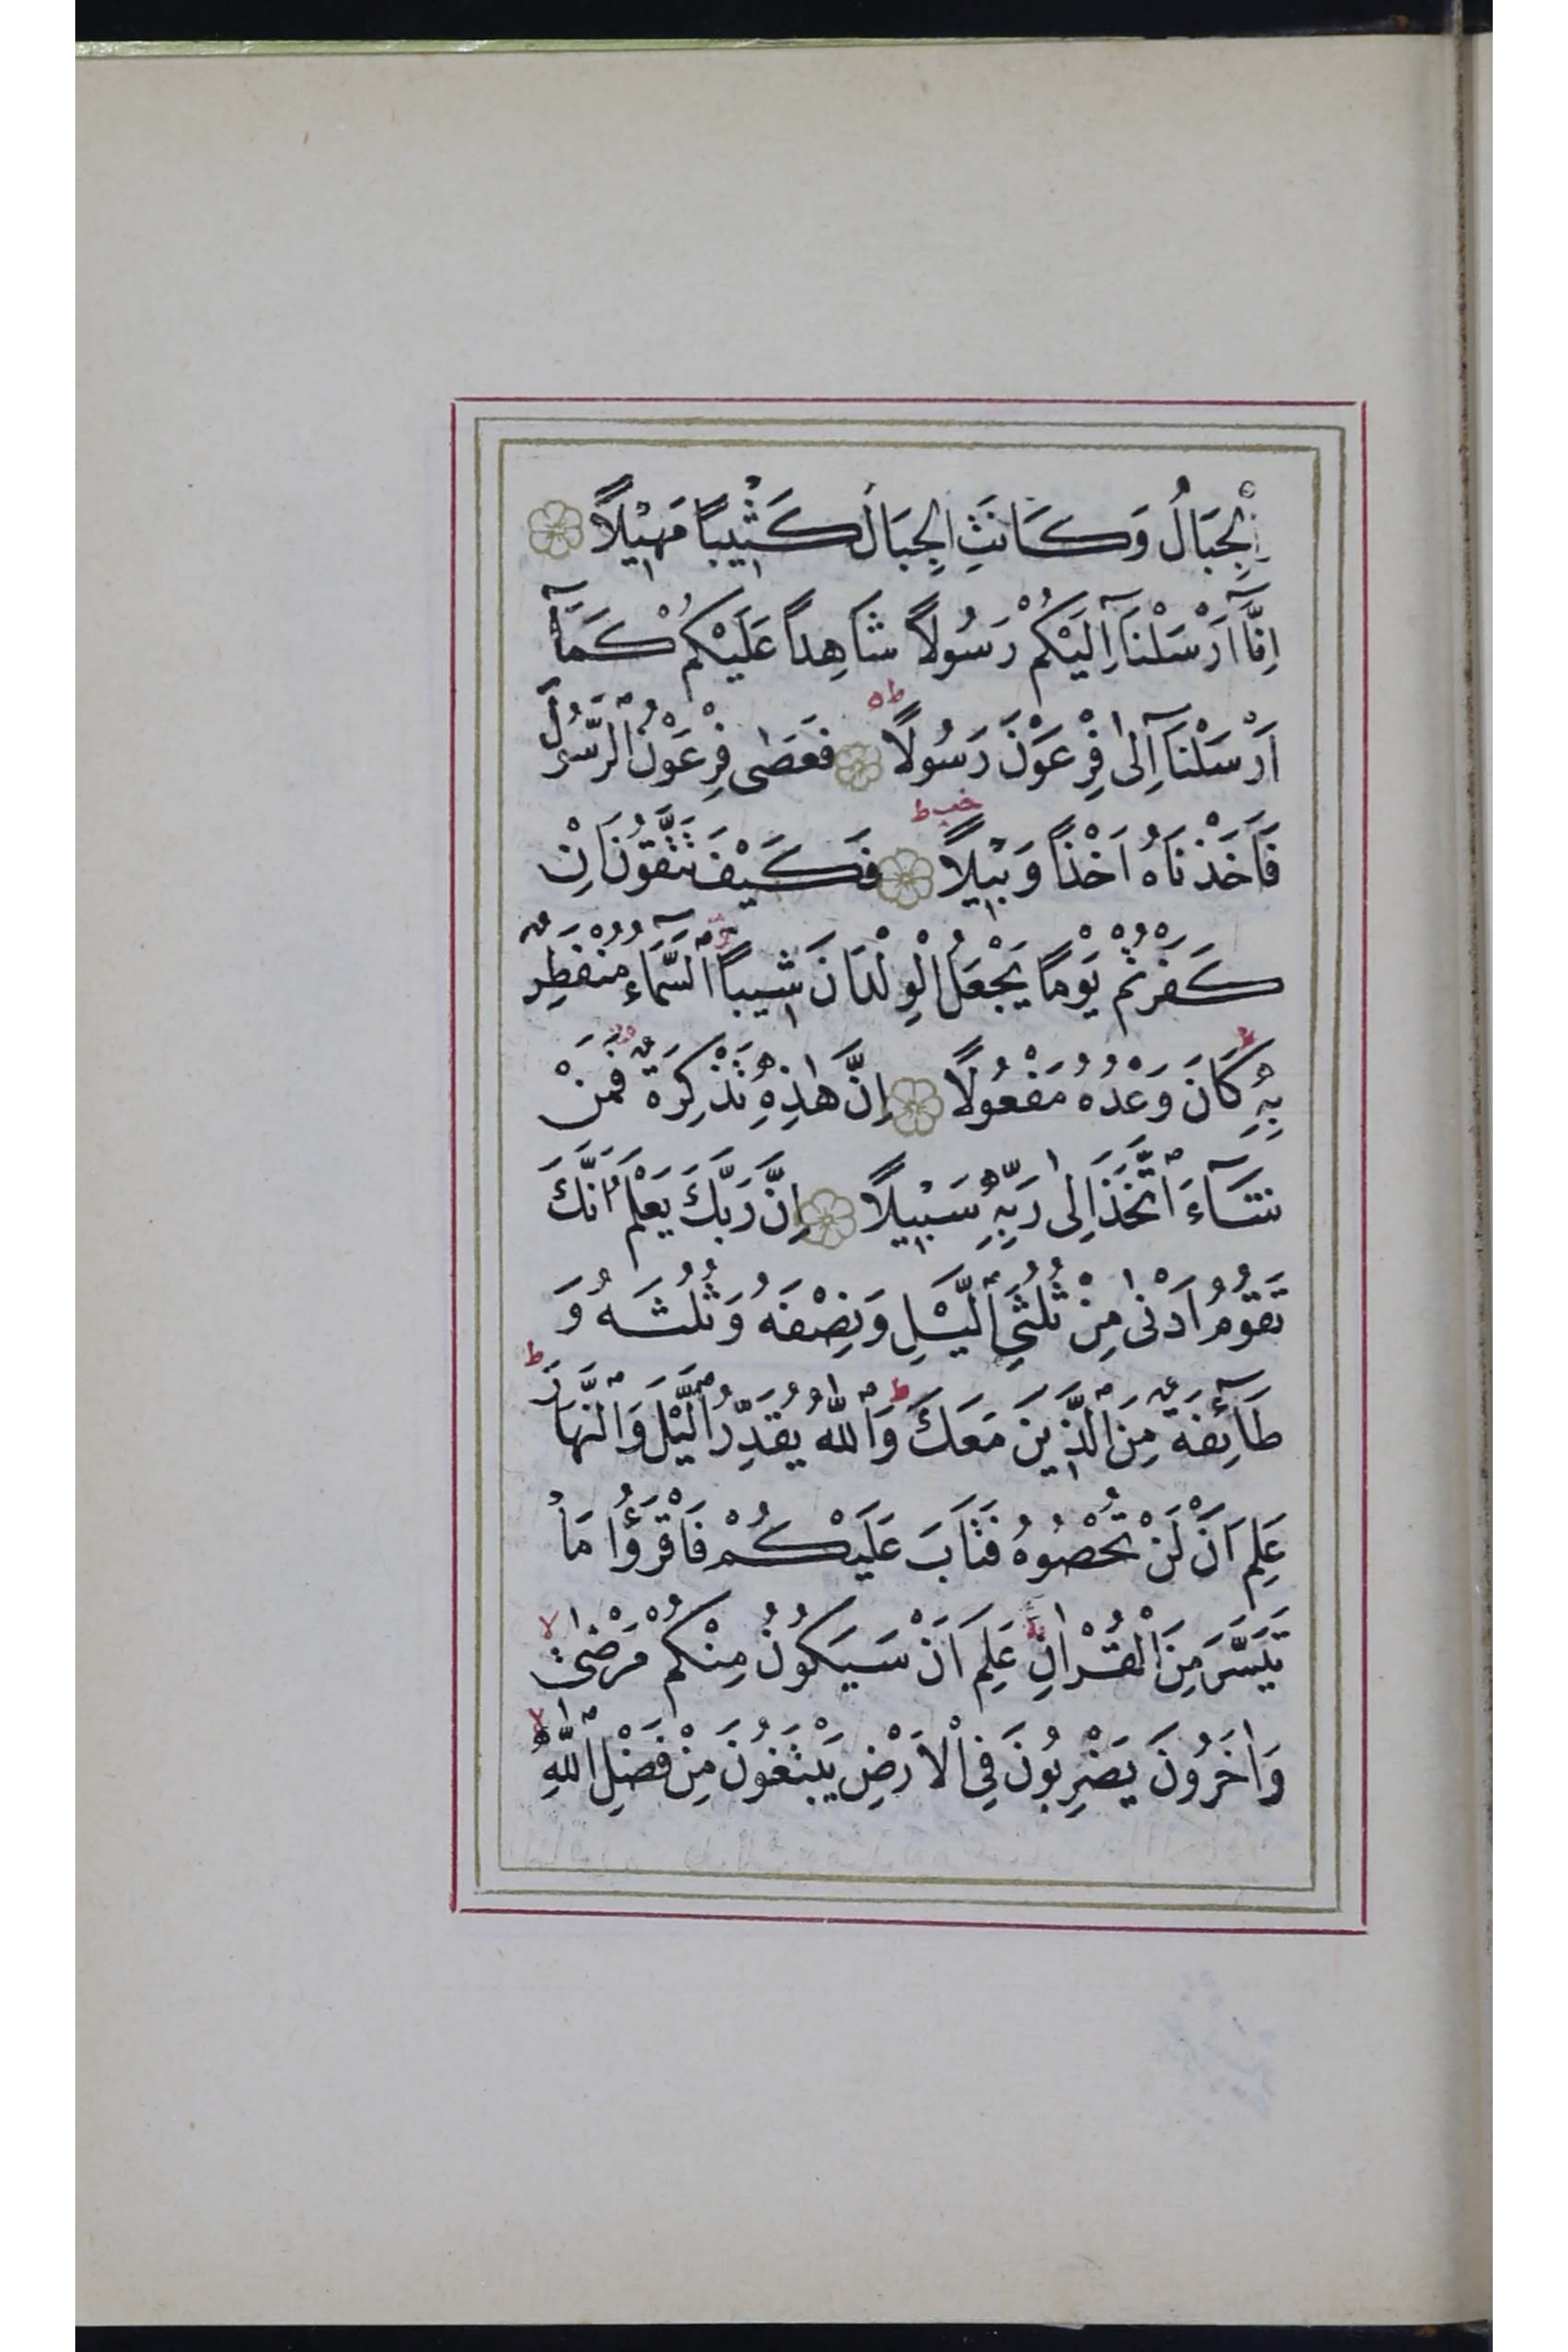 الْجِبَالُ وَكَانَتِ الْجِبَالُ كَثِيبًا مَهِيلًا
اِنَّآ اَرْسَلْنَآ اِلَيْكُمْ رَسُولًا شَاهِدًا عَلَيْكُمْ كَمَآ
اَرْسَلْنَآ اِلٰى فِرْعَوْنَ رَسُولًا فَعَصٰى فِرْعَوْنُ الرَّسُولَ
فَاَخَذْنَاهُ اَخْذًا وَبِيلًا فَكَيْفَ تَتَّقُونَ اِنْ
كَفَرْتُمْ يَوْمًا يَجْعَلُ الْوِلْدَانَ شِيبًا اَلسَّمَآءُ مُنْفَطِرٌ
بِهِ كَانَ وَعْدُهُ مَفْعُولًا اِنَّ هٰذِهِ تَذْكِرَةٌ فَمَنْ
شَآءَ اتَّخَذَ اِلٰى رَبِّهِ سَبِيلًا اِنَّ رَبَّكَ يَعْلَمُ اَنَّكَ
تَقُومُ اَدْنٰى مِنْ ثُلُثَيِ الَّيْلِ وَنِصْفَهُ وَثُلُثَهُ وَ
طَآئِفَةٌ مِنَ الَّذِينَ مَعَكَ ط وَاللّٰهُ يُقَدِّرُ الَّيْلَ وَالنَّهَارَ ط
عَلِمَ اَنْ لَنْ تُحْصُوهُ فَتَابَ عَلَيْكُمْ فَاقْرَؤُا مَا
تَيَسَّرَ مِنَ الْقُرْاٰنِ عَلِمَ اَنْ سَيَكُونُ مِنْكُمْ مَرْضٰى لا
وَاٰخَرُونَ يَضْرِبُونَ فِي الْاَرْضِ يَبْتَغُونَ مِنْ فَضْلِ اللّٰهِ لا